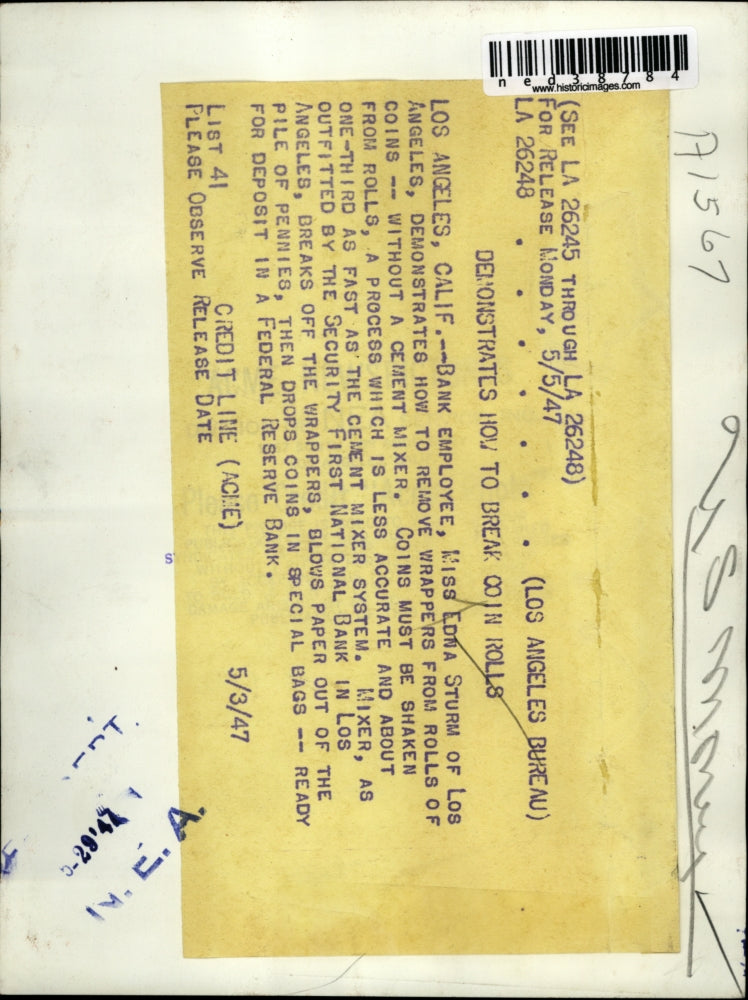 ned38784
www.historicimages.com
A1567
(SEE LA 26245 THROUGH LA 26248)
FOR RELEASE MONDAY, 5/5/47
LA 26248 . . . . . . . (LOS ANGELES BUREAU)
DEMONSTRATES HOW TO BREAK COIN ROLLS
LOS ANGELES, CALIF.--BANK EMPLOYEE, MISS EDNA STURM OF LOS
ANGELES, DEMONSTRATES HOW TO REMOVE WRAPPERS FROM ROLLS OF
COINS -- WITHOUT A CEMENT MIXER. COINS MUST BE SHAKEN
FROM ROLLS, A PROCESS WHICH IS LESS ACCURATE AND ABOUT
ONE-THIRD AS FAST AS THE CEMENT MIXER SYSTEM. MIXER, AS
OUTFITTED BY THE SECURITY FIRST NATIONAL BANK IN LOS
ANGELES, BREAKS OFF THE WRAPPERS, BLOWS PAPER OUT OF THE
PILE OF PENNIES, THEN DROPS COINS IN SPECIAL BAGS -- READY
FOR DEPOSIT IN A FEDERAL RESERVE BANK.
LIST 41 CREDIT LINE (ACME) 5/3/47
PLEASE OBSERVE RELEASE DATE
S
N. E. A.